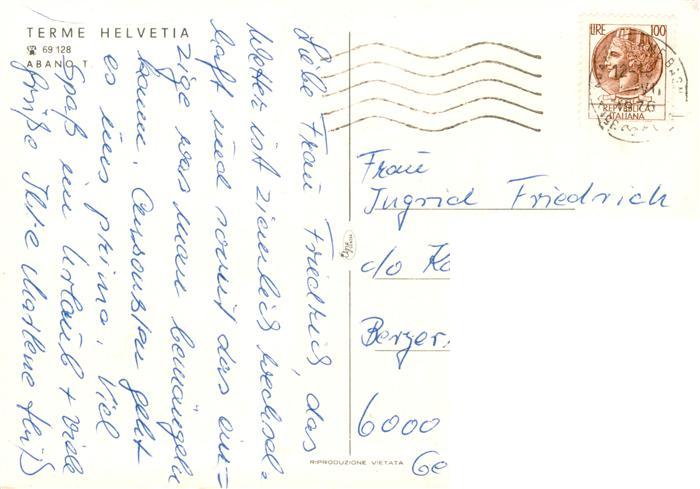 TERME HELVETIA
☎ 69 128
ABANO T.
Liebe Frau Friedrich, das
Wetter ist ziemlich wechsel-
haft und somit das ein=
zige was man bemängeln
kann. Ansonsten geht
es uns prima. Viel
Spaß im Urlaub + viele
Grüße Ihre Marlene
LIRE 100
REPVBBLICA
ITALIANA
Frau
Ingrid Friedrich
c/o
Berger
6000
RIPRODUZIONE VIETATA